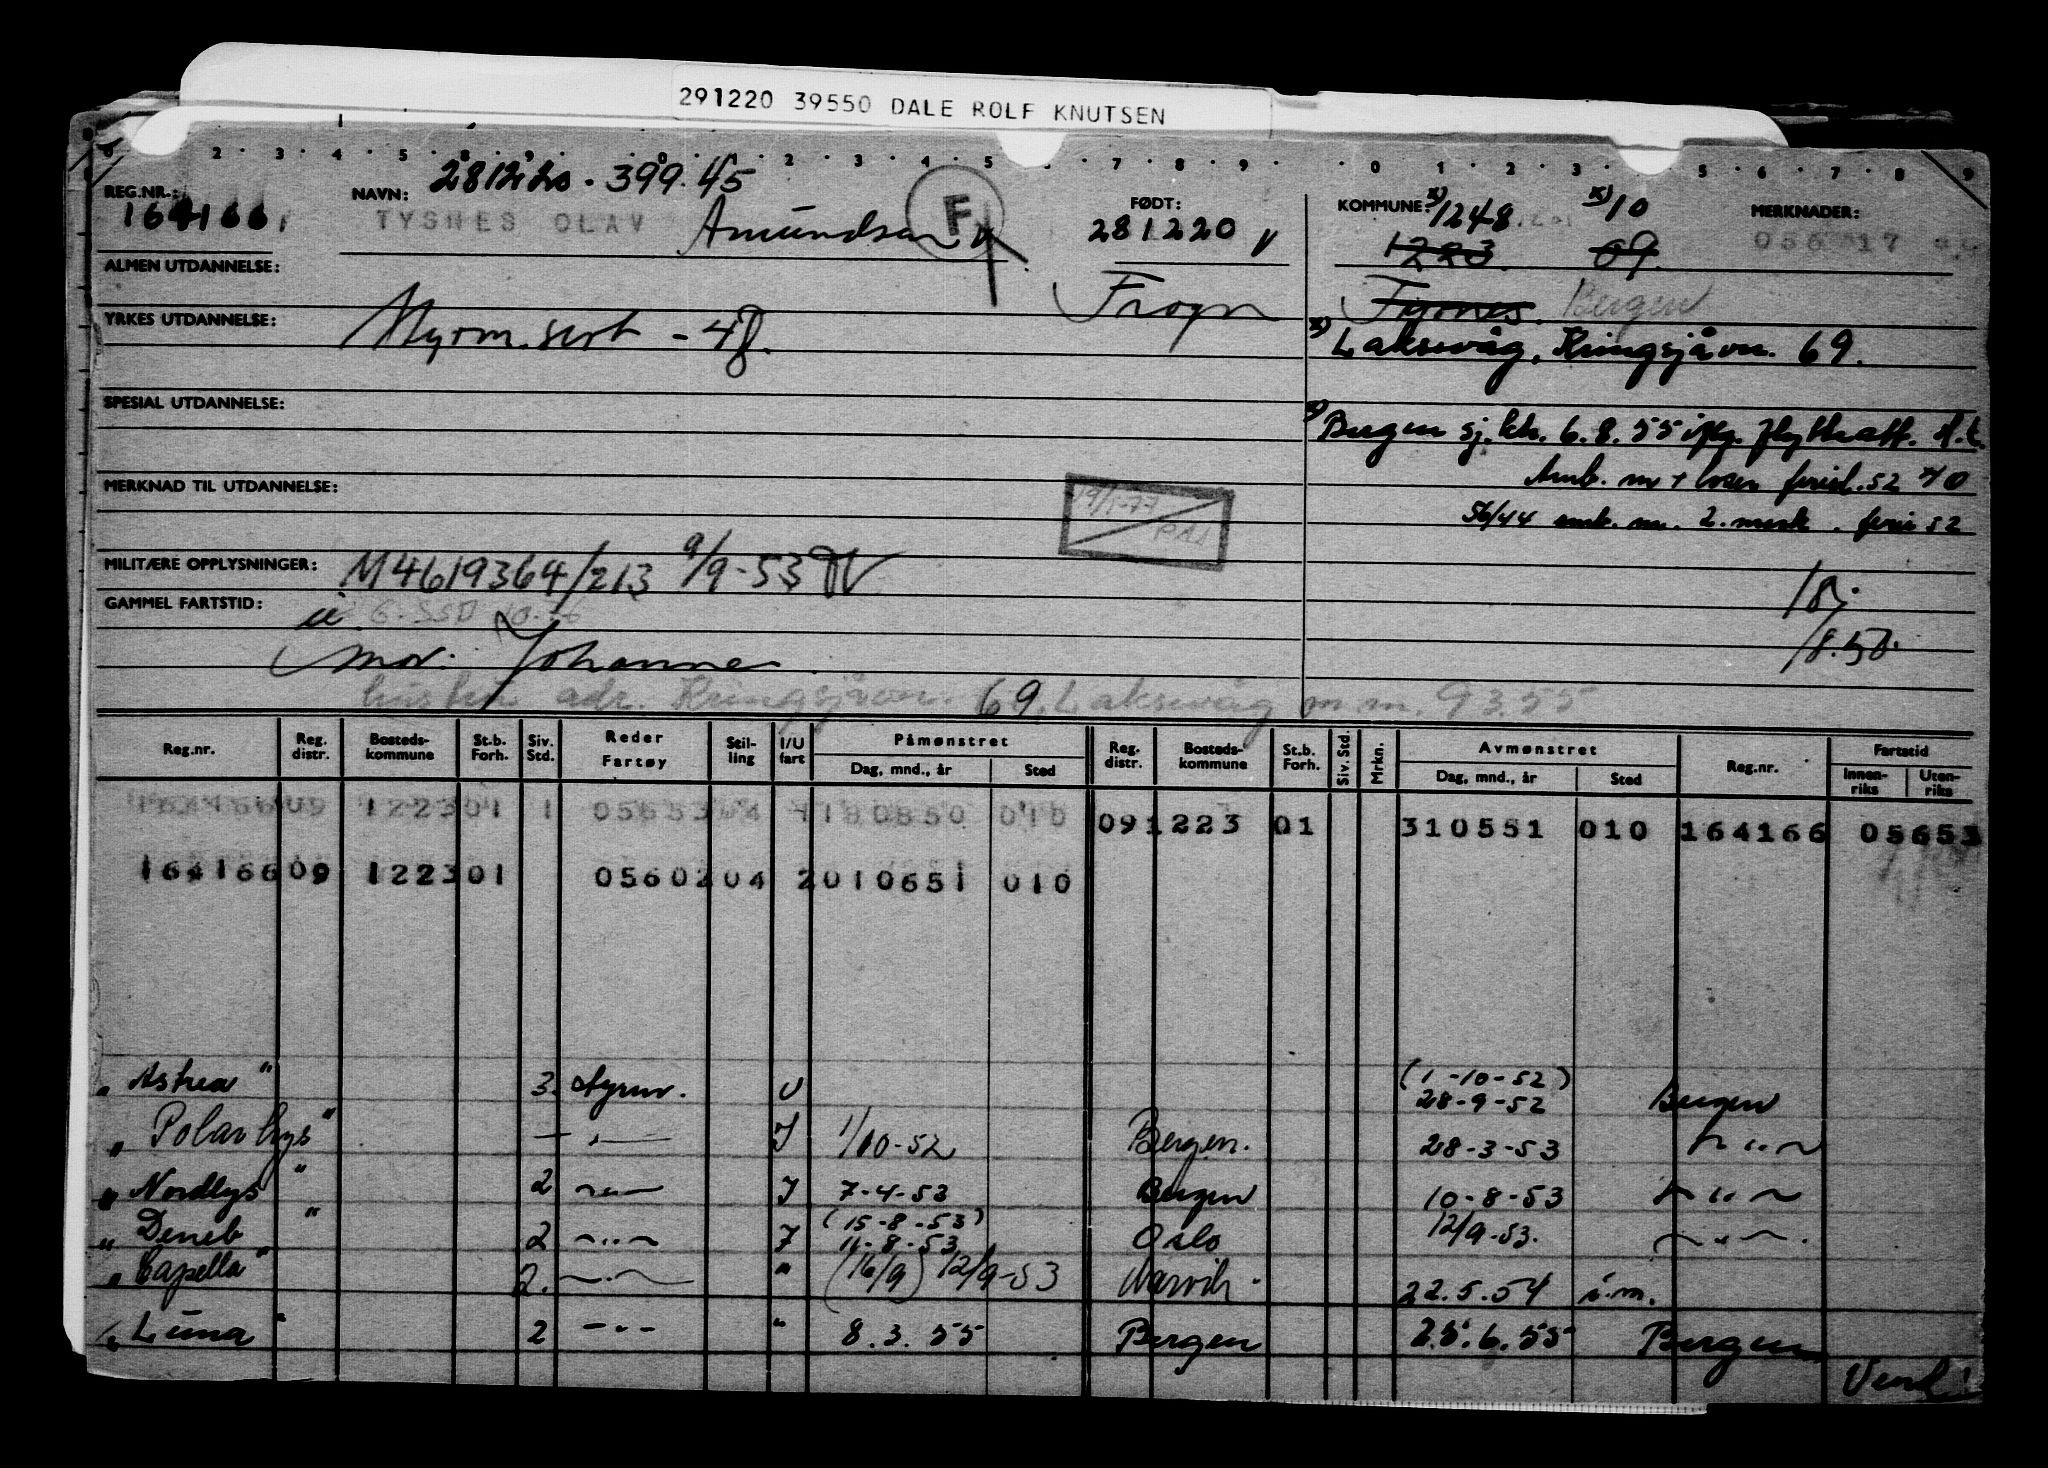 291220 39550 DALE ROLF KNUTSEN
281220 - 399.45
REG.NR.: 164166 NAVN: TYSNES OLAV Amundsen F FØDT: 281220 KOMMUNE: x) 1248 x) 10 MERKNADER:
1223 09
ALMEN UTDANNELSE: Frogn Tysnes. Bergen
YRKES UTDANNELSE: Styrm.sert - 48. x) Laksevåg, Kringsjåvn. 69.
SPESIAL UTDANNELSE: x) Bergen sj. ktr. 6.8.55
MERKNAD TIL UTDANNELSE: 19/1-77
MILITÆRE OPPLYSNINGER: M4619364/213 9/9-53
GAMMEL FARTSTID:
Mor: Johanne 18.50
adr. Kringsjåvn. 69. Laksevåg m.m. 9.3.55
Reg.nr. Reg. distr. Bosteds- kommune St.b. Forh. Siv. Std. Reder Fartøy Stil- ling I/U fart Påmønstret Dag, mnd., år Sted Reg. distr. Bosteds- kommune St.b. Forh. Siv. Std. Mrkn. Avmønstret Dag, mnd., år Sted Reg.nr. Fartstid Innen- riks Uten- riks
164166 09 1223 01 1 05653 04 180850 010 09 1223 01 310551 010 164166 05653
164166 09 1223 01 05602 04 2 010651 010
" Astrea " 3. styrm. U (1-10-52) 28-9-52 Bergen
" Polarlys " — " — I 1/10-52 Bergen. 28-3-53 — " —
" Nordlys " 2 — " — I 7-4-53 Bergen 10-8-53 — " —
" Deneb " 2 — " — I (15-8-53) 11-8-53 Oslo 12/9-53. — " —
" Capella " 2. — " — " (16/9) 12/9-53 Narvik 22.5.54 i.m.
" Luna " 2 — " — " 8.3.55 Bergen 25.6.55 Bergen